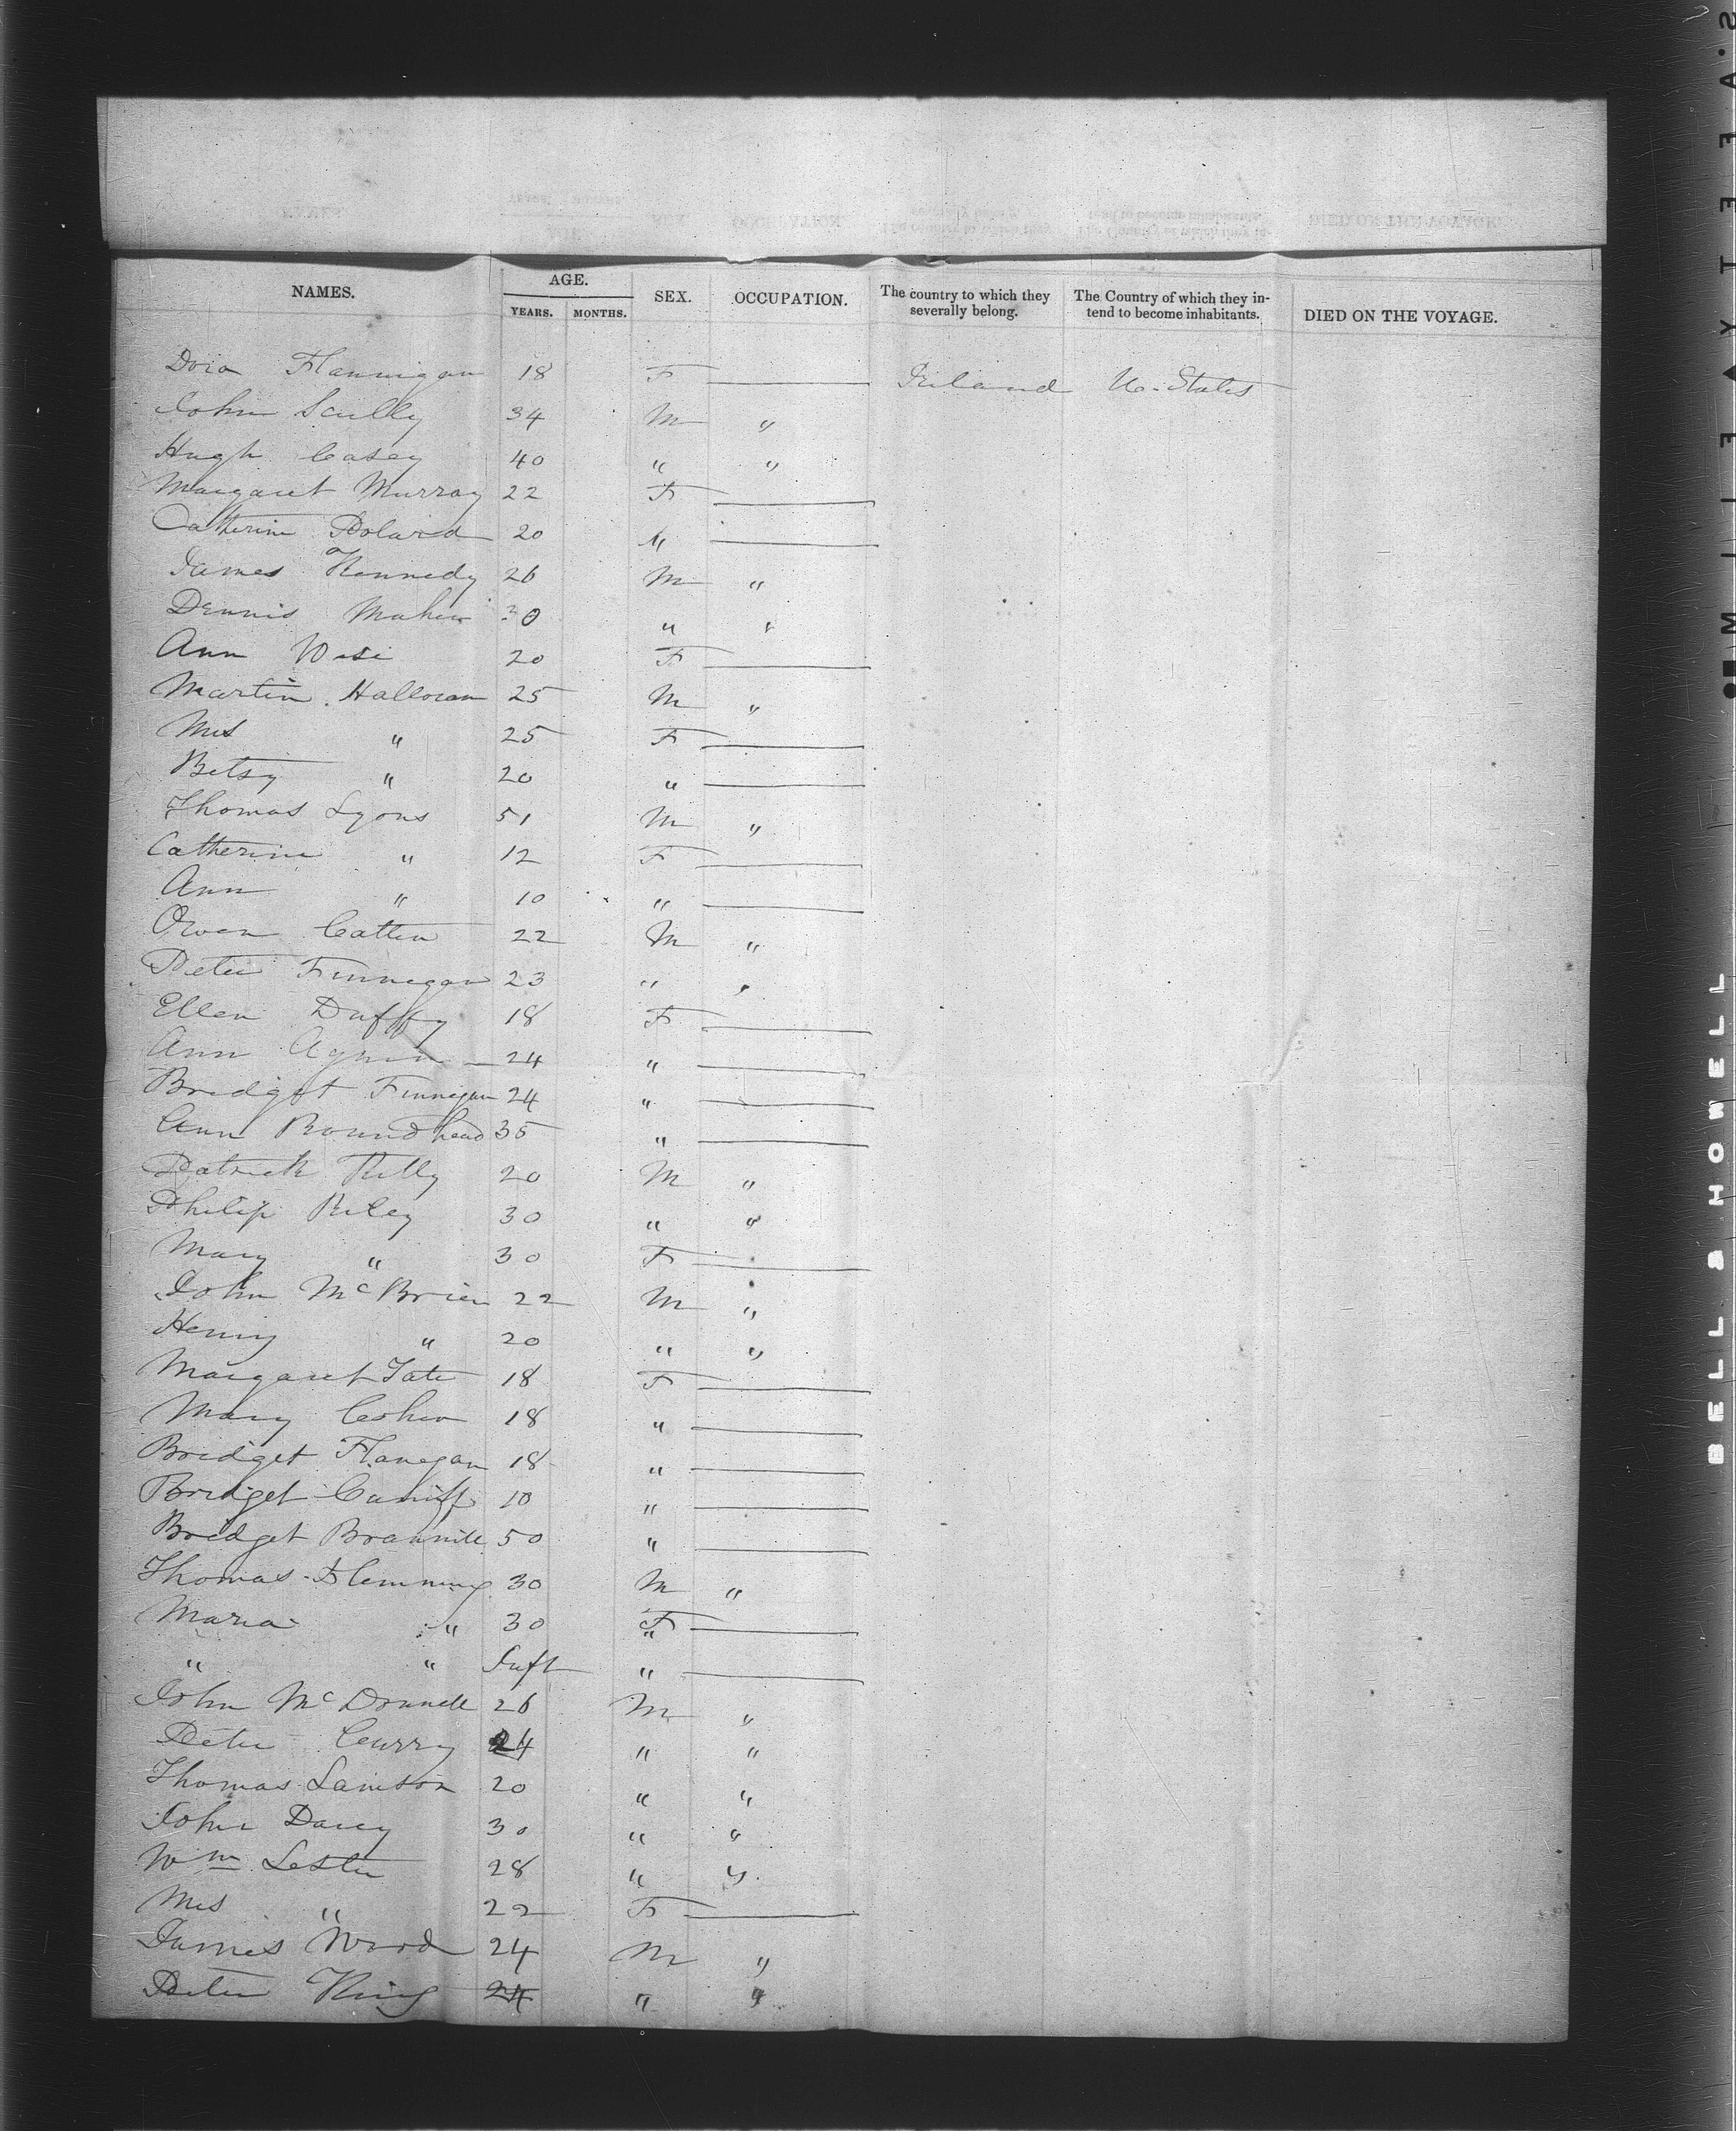 NAMES. AGE. YEARS. MONTHS. SEX. OCCUPATION. The country to which they severally belong. The Country of which they intend to become inhabitants. DIED ON THE VOYAGE.
Dora Flannigan 18 F Ireland U. States
John Scully 34 M "
Hugh Casey 40 " "
Margaret Murray 22 F
Catherine Boland 20 "
James Kennedy 26 M "
Dennis Maher 30 " "
Ann 20 F
Martin Halloran 25 M "
Mrs " 25 F
Betsy " 20 "
Thomas Lyons 51 M "
Catherine " 12 F
Ann " 10 "
Owen 22 M "
Peter Finnegan 23 " "
Ellen Duffy 18 F
Ann 24 "
Bridget Finnegan 24 "
Ann Roundhead 35 "
Patrick Kelly 20 M "
Philip Riley 30 " "
Mary " 30 F
John McBrien 22 M "
Henry " 20 " "
Margaret Tate 18 F
Mary 18 "
Bridget Flanegan 18 "
Bridget 10 "
Bridget 50 "
Thomas Flemming 30 M "
Maria " 30 F
" " Inft "
John McDonnell 26 M "
Peter Curry 24 " "
Thomas 20 " "
John Darcy 30 " "
Wm Lester 28 " "
Mrs " 22 F
James Wood 24 M "
Peter King 24 " "
BELL & HOWELL